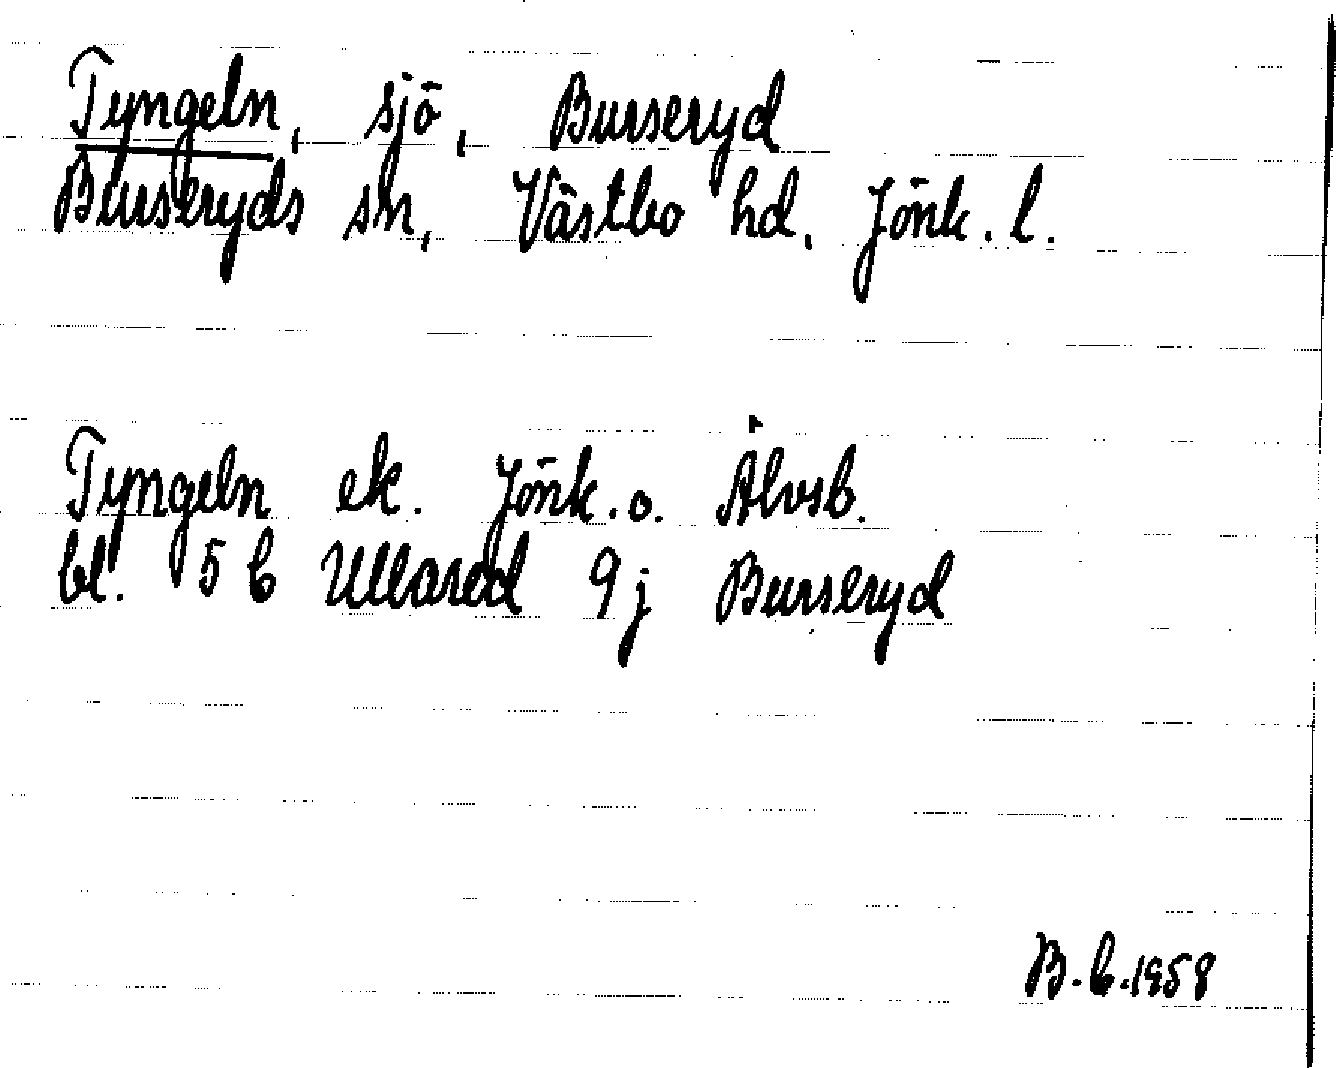 Tyngeln, sjö, Burseryd
Burseryds sn, Västbo hd. Jönk. l.
Tyngeln ek. Jönk. o. Älvsb.
bl. 5 C Ullared 9j Burseryd
B.b.1958